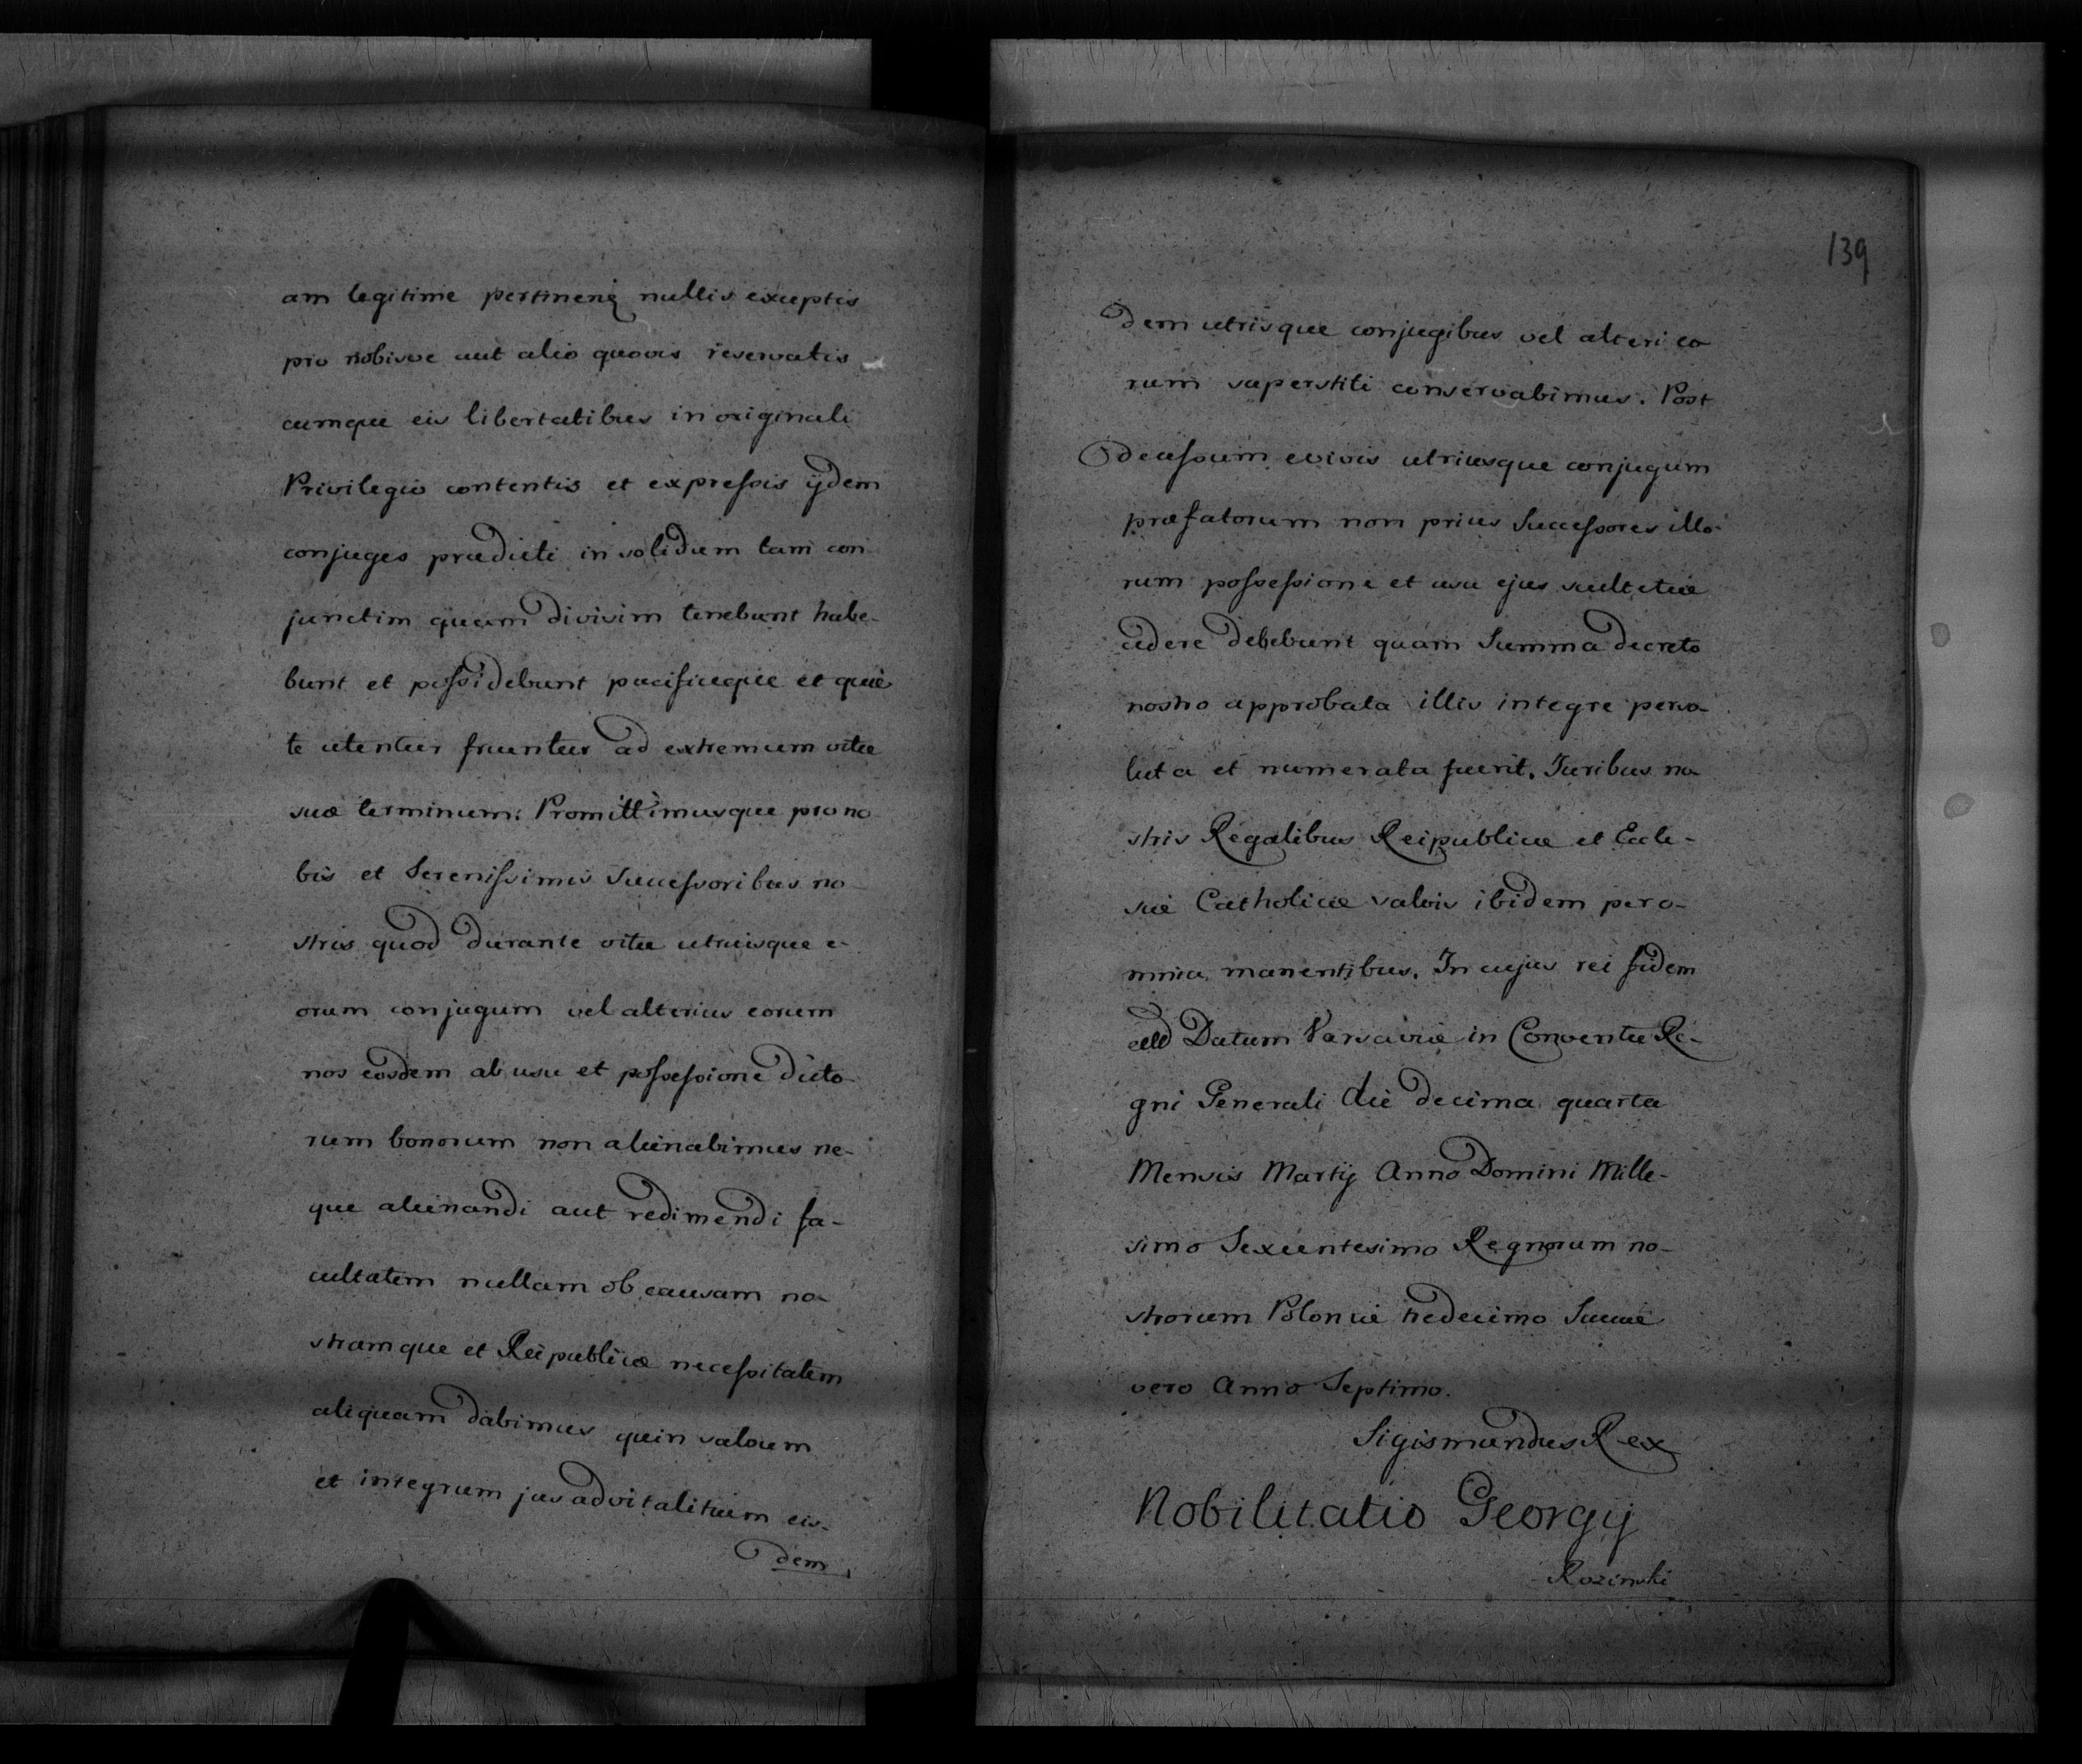 am legitime pertinenꝫ nullis exceptis
pro nobisve aut alio quovis reservatis
cumque eis libertatibus in originali
Privilegio contentis et expreſsis ijdem
conjuges prædicti in solidum tam con
junctim quam divisim tenebunt habe-
bunt et poſsidebunt pacificeque et quie
te utentur fruentur ad extremum vitæ
suæ terminum: Promittimusque pro no
bis et Sereniſsimis Succeſsoribus no
stris quod durante vita utriusque e-
orum conjugum vel alterius eorum
nos eosdem ab usu et poſseſsione dicto
rum bonorum non alienabimus ne-
que alienandi aut redimendi fa-
cultatem nullam ob causam no-
stramque et Reipublicæ neceſsitatem
aliquam dabimus quin salvum
et integrum jus advitalitium eis-
dem
139
dem utrisque conjugibus vel alteri eo
rum superstiti conservabimus. Post
deceſsum e vivis utriusque conjugum
præfatorum non prius Succeſsores illo-
rum poſseſsione et usu ejus scultetiæ
cedere debebunt quam Summa decreto
nostro approbata illis integre perso-
luta et numerata fuerit. Juribus no
stris Regalibus Reipublicæ et Eccle-
siæ Catholicæ salvis ibidem per o-
mnia manentibus. In cujus rei fidem
Datum Varsaviæ in Conventu Re-
gni Generali die decima quarta
Mensis Martij Anno Domini Mille-
simo Sexcentesimo Regnorum no-
strorum Poloniæ tredecimo Sueciæ
vero Anno Septimo.
Sigismundus Rex
Nobilitatio Georgij
Rozinski